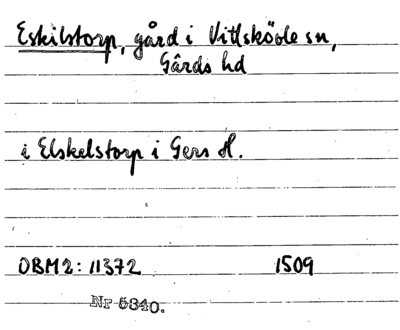 Eskilstorp, gård i Vittskövle sn,
Gärds hd
i Elskelstorp i Gers H.
OBM2: 11372 1509
Nr 5340.